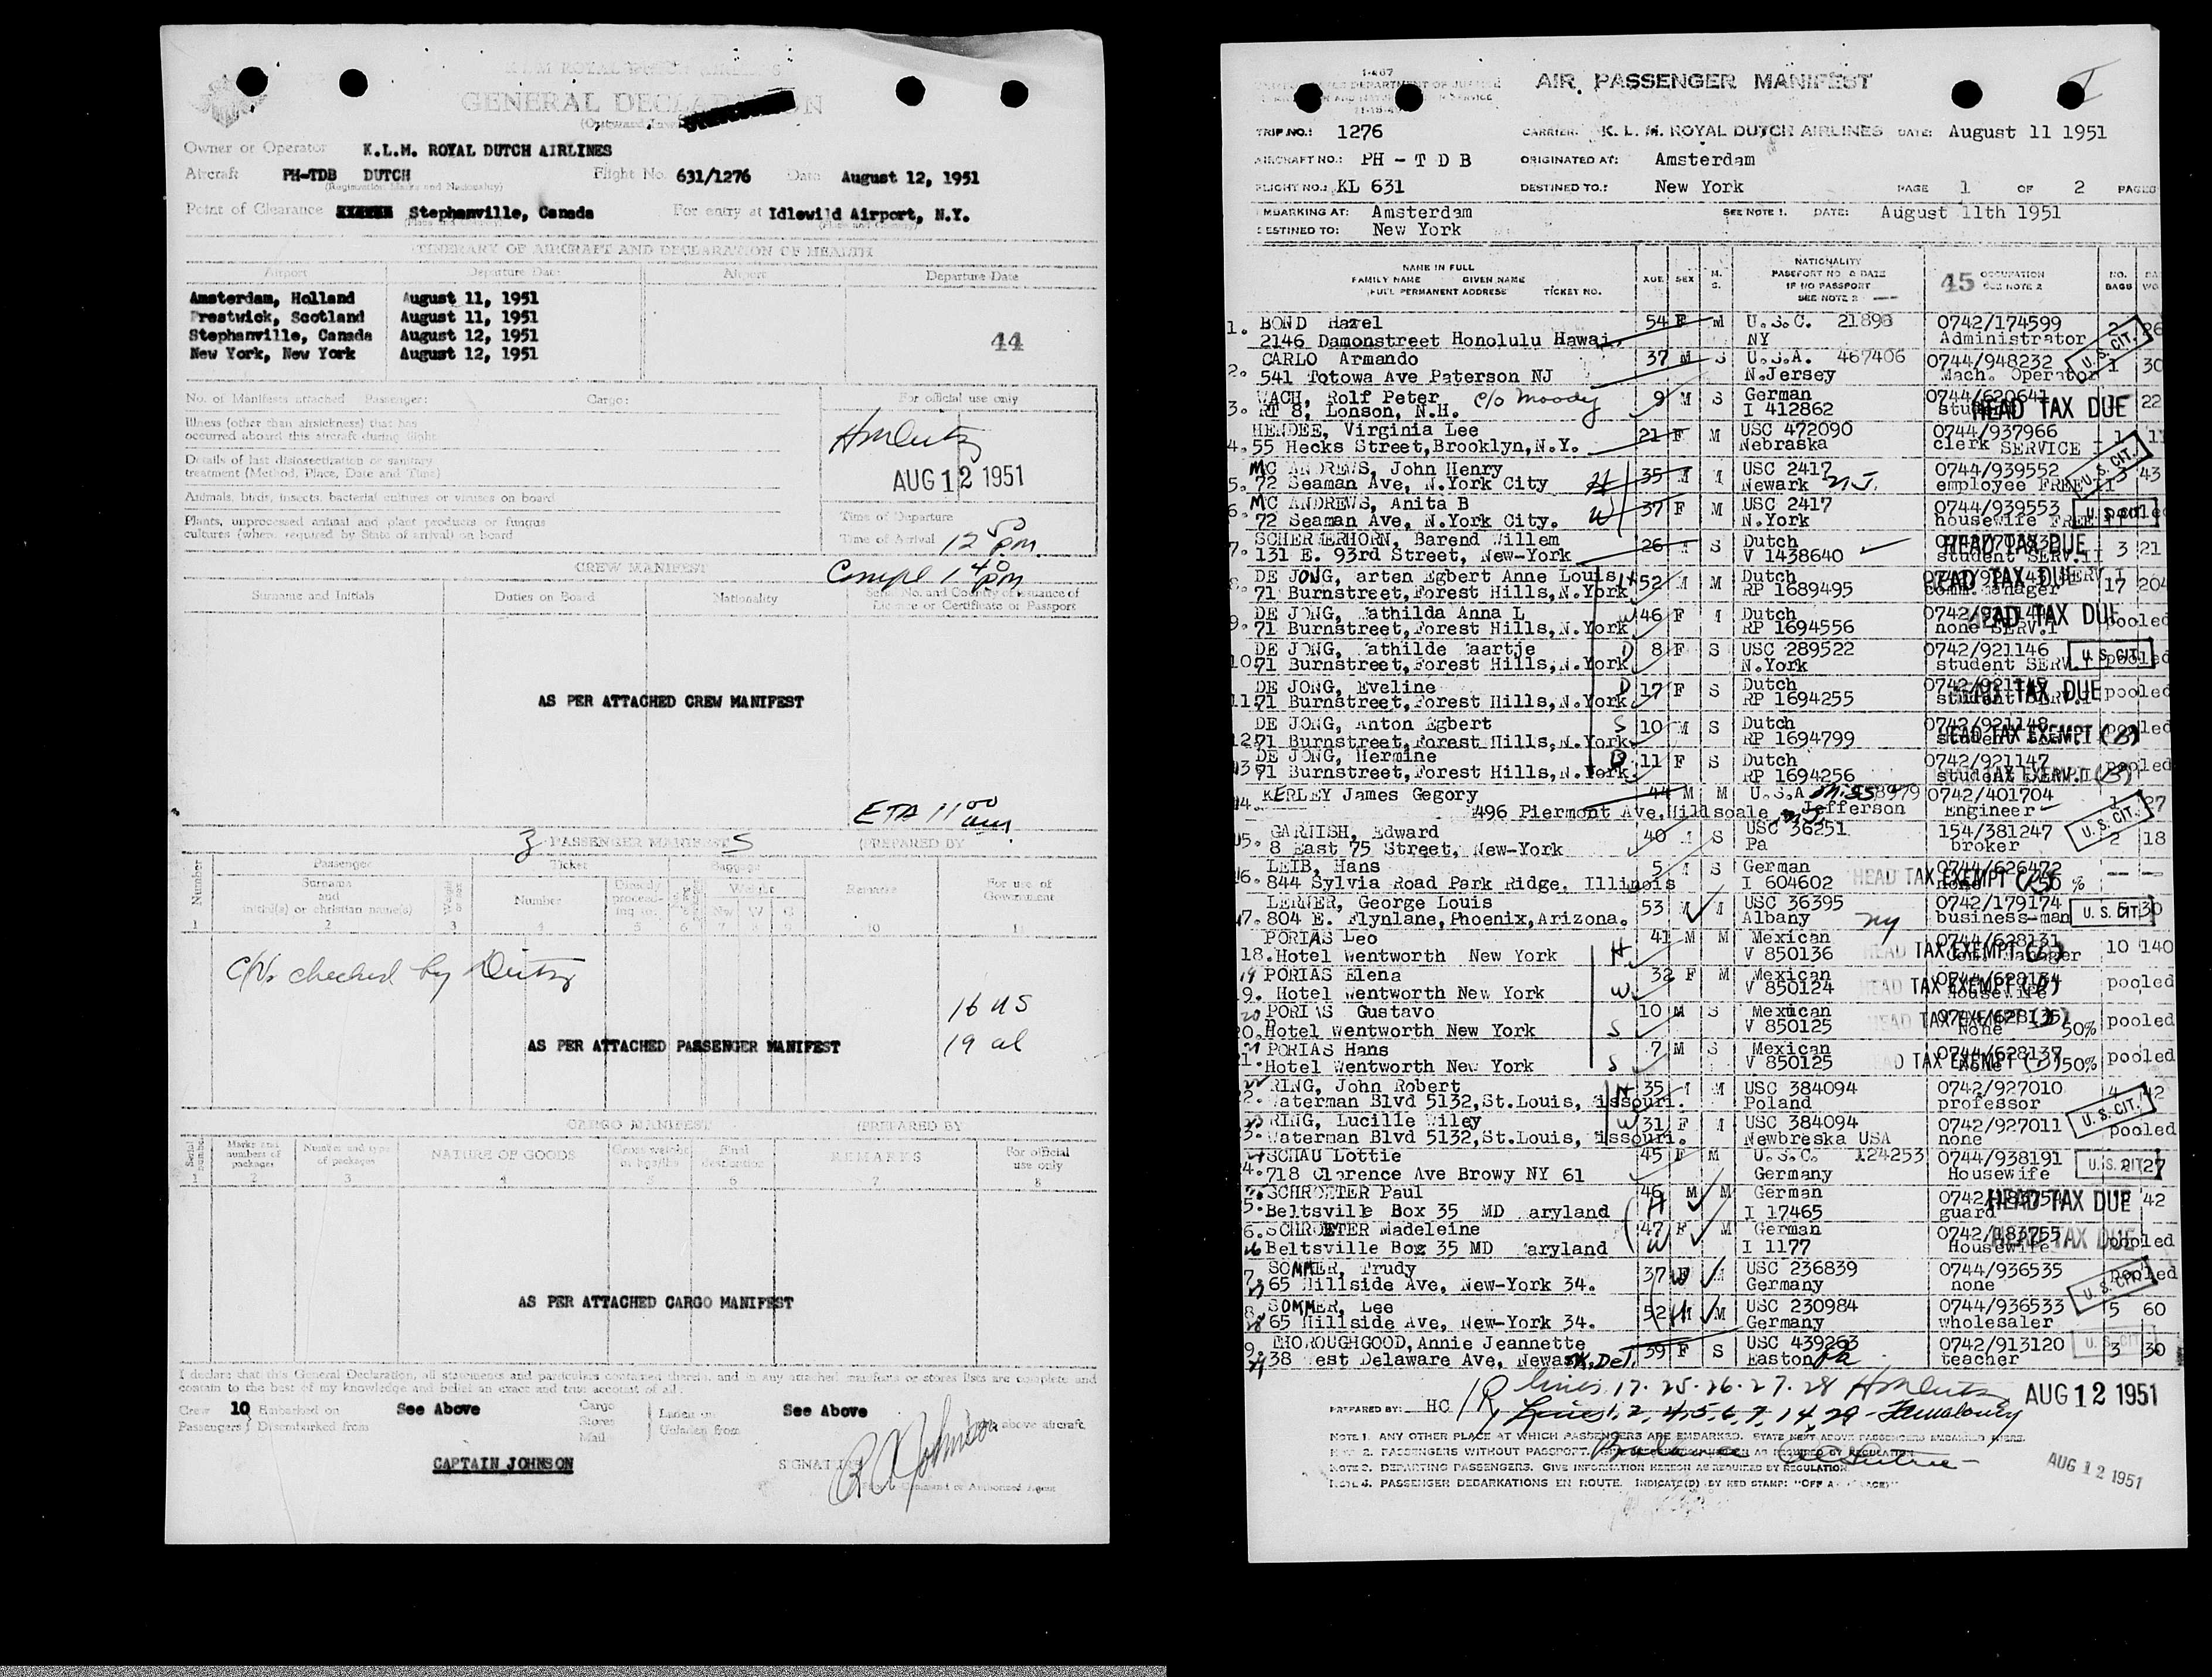 K.L.M. ROYAL DUTCH AIRLINES
GENERAL DECLARATION
(Outward
Owner or Operator K.L.M. ROYAL DUTCH AIRLINES
Aircraft PH-TDB DUTCH Flight No. 631/1276 Date August 12, 1951
(Registration Marks and Nationality)
Point of Clearance Stephanville, Canada For entry at Idlewild Airport, N.Y.
(Place and Country) (Place and Country)
ITINERARY OF AIRCRAFT AND DECLARATION OF HEALTH
Airport Departure Date Airport Departure Date
Amsterdam, Holland August 11, 1951
Prestwick, Scotland August 11, 1951
Stephanville, Canada August 12, 1951
44
New York, New York August 12, 1951
No. of Manifests attached Passenger: Cargo: For official use only
Illness (other than airsickness) that has
occurred aboard this aircraft during flight
Details of last disinsectization or sanitary
treatment (Method, Place, Date and Time)
AUG 12 1951
Animals, birds, insects, bacterial cultures or viruses on board
Plants, unprocessed animal and plant products or fungus
cultures (where required by State of arrival) on board
Time of Departure
Time of Arrival 12 50 pm
Compl 1 40 pm
CREW MANIFEST
Surname and Initials Duties on Board Nationality Serial No. and Country of Issuance of
Licence or Certificate or Passport
AS PER ATTACHED CREW MANIFEST
ETA 11 00 am
3 PASSENGER MANIFESTS (PREPARED BY
Number Passenger Ticket Baggage Remarks For use of
Government
Surname
and
initial(s) or christian name(s) Number Directly
proceeding to: Weight
Nw W G
1 2 3 4 5 6 7 8 9 10 11
checked by
16 US
19 al
AS PER ATTACHED PASSENGER MANIFEST
CARGO MANIFEST (PREPARED BY
Serial number Marks and
numbers of
packages Number and type
of packages NATURE OF GOODS Gross weight Final
destination REMARKS For official
use only
1 2 3 4 5 6 7 8
AS PER ATTACHED CARGO MANIFEST
I declare that this General Declaration, all statements and particulars contained therein, and in any attached manifests or stores lists are complete and
contain to the best of my knowledge and belief an exact and true account of all:
Crew 10 Embarked on See Above Cargo Laden on See Above
Passengers Disembarked from Stores Unladen from above aircraft
Mail
CAPTAIN JOHNSON SIGNATURE
Command or Authorized Agent
I-467
DEPARTMENT OF JUSTICE
AIR PASSENGER MANIFEST
TRIP NO.: 1276 CARRIER: K. L. M. ROYAL DUTCH AIRLINES DATE: August 11 1951
AIRCRAFT NO.: PH - T D B ORIGINATED AT: Amsterdam
FLIGHT NO.: KL 631 DESTINED TO.: New York PAGE 1 OF 2 PAGES
EMBARKING AT: Amsterdam SEE NOTE 1. DATE: August 11th 1951
DESTINED TO: New York
NAME IN FULL
FAMILY NAME GIVEN NAME
FULL PERMANENT ADDRESS TICKET NO. AGE SEX M.
S. NATIONALITY
PASSPORT NO & DATE
IF NO PASSPORT
SEE NOTE 2 45 OCCUPATION
SEE NOTE 2 NO.
BAGS
1. BOND Hazel 54 F M U.S.C. 21898 0742/174599 26
2146 Damonstreet Honolulu Hawai. NY Administrator U. S. CIT.
2. CARLO Armando 37 M S U.S.A. 467406 0744/948232
541 Totowa Ave Paterson NJ N.Jersey Mach. Operator 1 30
3. WACH, Rolf Peter c/o Moody 9 M S German 0744/620641
RT 8, Lonson, N.H. I 412862 student HEAD TAX DUE 22
4. HENDEE, Virginia Lee 21 F M USC 472090 0744/937966
55 Hecks Street, Brooklyn, N.Y. Nebraska clerk SERVICE
5. MC ANDREWS, John Henry H 35 M M USC 2417 0744/939552 43
72 Seaman Ave, N.York City Newark N.J. employee FREE U. S. CIT.
6. MC ANDREWS, Anita B W 37 F M USC 2417 0744/939553
72 Seaman Ave, N.York City. N.York housewife FREE U. S. CIT.
7. SCHERMERHORN, Barend Willem 26 S Dutch HEAD TAX DUE
131 E. 93rd Street, New-York V 1438640 student SERV. 3 21
8. DE JONG, arten Egbert Anne Louis H 52 M M Dutch HEAD TAX DUE
71 Burnstreet, Forest Hills, N.York RP 1689495 comm. manager 17 204
9. DE JONG, athilda Anna L W 46 F M Dutch HEAD TAX DUE
71 Burnstreet, Forest Hills, N.York RP 1694556 none SERV. pooled
10. DE JONG, athilde aartje D 8 F S USC 289522 0742/921146
71 Burnstreet, Forest Hills, N.York N.York student SERV. U. S. CIT. pooled
11. DE JONG, Eveline D 17 F S Dutch HEAD TAX DUE
71 Burnstreet, Forest Hills, N.York. RP 1694255 student pooled
12. DE JONG, Anton Egbert S 10 M S Dutch 0742/921148
71 Burnstreet, Forest Hills, N.York RP 1694799 HEAD TAX EXEMPT (B) pooled
13. DE JONG, Hermine D 11 F S Dutch 0742/921147
71 Burnstreet, Forest Hills, N.York. RP 1694256 student TAX EXEMPT (B) pooled
14. KERLEY James Gegory 44 M M U.S.A Miss 0742/401704 27
496 Piermont Ave, Hillsdale N.J. Jefferson Engineer U. S. CIT.
15. GARNISH, Edward 40 M S USC 36251 154/381247
8 East 75 Street, New-York Pa broker 2 18
16. LEIB, Hans 5 M S German 0744/626472
844 Sylvia Road Park Ridge, Illinois I 604602 HEAD TAX EXEMPT
17. LERNER, George Louis 53 M M USC 36395 0742/179174
804 E. Flynlane, Phoenix, Arizona. Albany NY business-man U. S. CIT. 30
18. PORIAS Leo H 41 M M Mexican 0744/628131
Hotel Wentworth New York V 850136 HEAD TAX EXEMPT 10 140
19 PORIAS Elena W 32 F M Mexican 0744/628134
Hotel Wentworth New York V 850124 HEAD TAX EXEMPT Housewife pooled
20 PORIAS Gustavo S 10 M S Mexican
Hotel Wentworth New York V 850125 HEAD TAX EXEMPT None 50% pooled
21 PORIAS Hans S 7 M S Mexican 0744/628137
Hotel Wentworth New York V 850125 TAX EXEMPT 50% pooled
22 RING, John Robert H 35 M USC 384094 0742/927010 4 42
Waterman Blvd 5132, St.Louis, Missouri. Poland professor U. S. CIT.
23 RING, Lucille Wiley W 31 F M USC 384094 0742/927011
Waterman Blvd 5132, St.Louis, Missouri. Newbreska USA none pooled
24 SCHAU Lottie 45 F M U.S.C. 124253 0744/938191
718 Clarence Ave Browy NY 61 Germany Housewife U. S. CIT. 27
25 SCHROETER Paul H 46 M M German HEAD TAX DUE
Beltsville Box 35 MD aryland I 17465 guard 42
26 SCHROETER Madeleine W 47 F M German 0742/183755
Beltsville Box 35 MD aryland I 1177 Housewife HEAD TAX DUE pooled
27 SOMMER, Trudy W 37 F M USC 236839 0744/936535
65 Hillside Ave, New-York 34. Germany none U. S. CIT. pooled
28 SOMMER, Lee H 52 M M USC 230984 0744/936533 5 60
65 Hillside Ave, New-York 34. Germany wholesaler
29 THOROUGHGOOD, Annie Jeannette 39 F S USC 439263 0742/913120 U. S. CIT.
38 West Delaware Ave, Newark, Del. Easton Pa teacher 3 30
lines 17. 25. 26. 27. 28 AUG 12 1951
PREPARED BY: HC Lines 1, 2, 4, 5, 6, 7, 14 29
NOTE 1. ANY OTHER PLACE AT WHICH PASSENGERS ARE EMBARKED. STATE NEXT ABOVE PASSENGERS EMBARKED THERE.
NOTE 2. PASSENGERS WITHOUT PASSPORT. AS REQUIRED BY REGULATION
NOTE 3. DEPARTING PASSENGERS. GIVE INFORMATION HEREON AS REQUIRED BY REGULATION
NOTE 4. PASSENGER DEBARKATIONS EN ROUTE. INDICATE(D) BY RED STAMP: "OFF A
AUG 12 1951